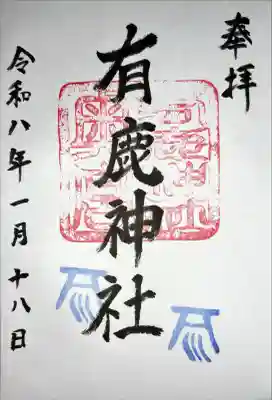 奉拝
有鹿神社
令和八年一月十八日